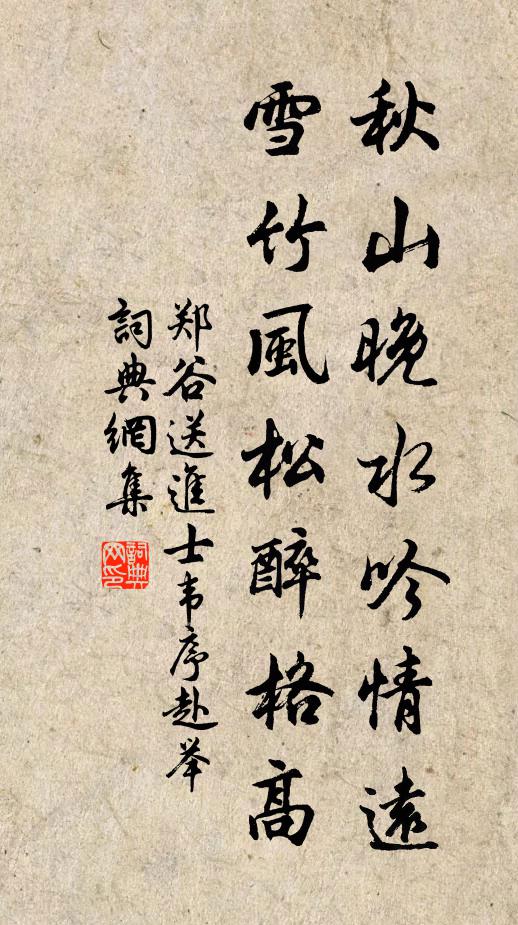 秋山晚水吟情遠
雪竹風松醉格高
郑谷送進士韦序赴举
詞典網集
詞典網印